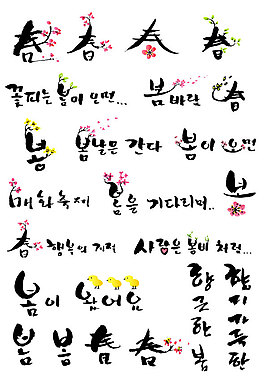 春 春 春 春
꽃피는 봄이 오면... 봄바람 春
봄 봄날은 간다 봄이 오면
매화축제 봄을 기다리며.. 봄
春 행복의 기적 사랑은 봄비처럼...
봄이 왔어요
봄 봄 春 春
향긋한 봄
향기가득한